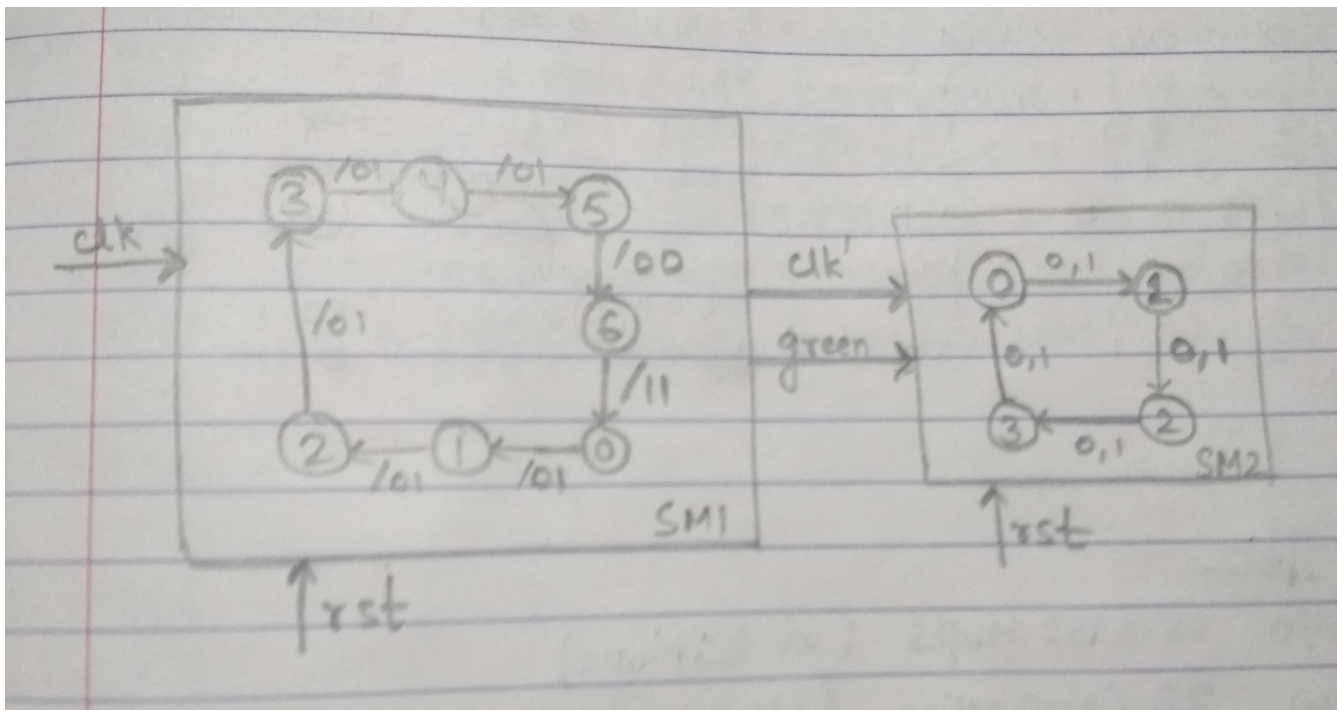 clk
3 /01 4 /01 5
/00
/01
6
/11
2 /01 1 /01 0
SM1
rst
clk'
green
0 0,1 1
0,1 0,1
3 0,1 2
SM2
rst